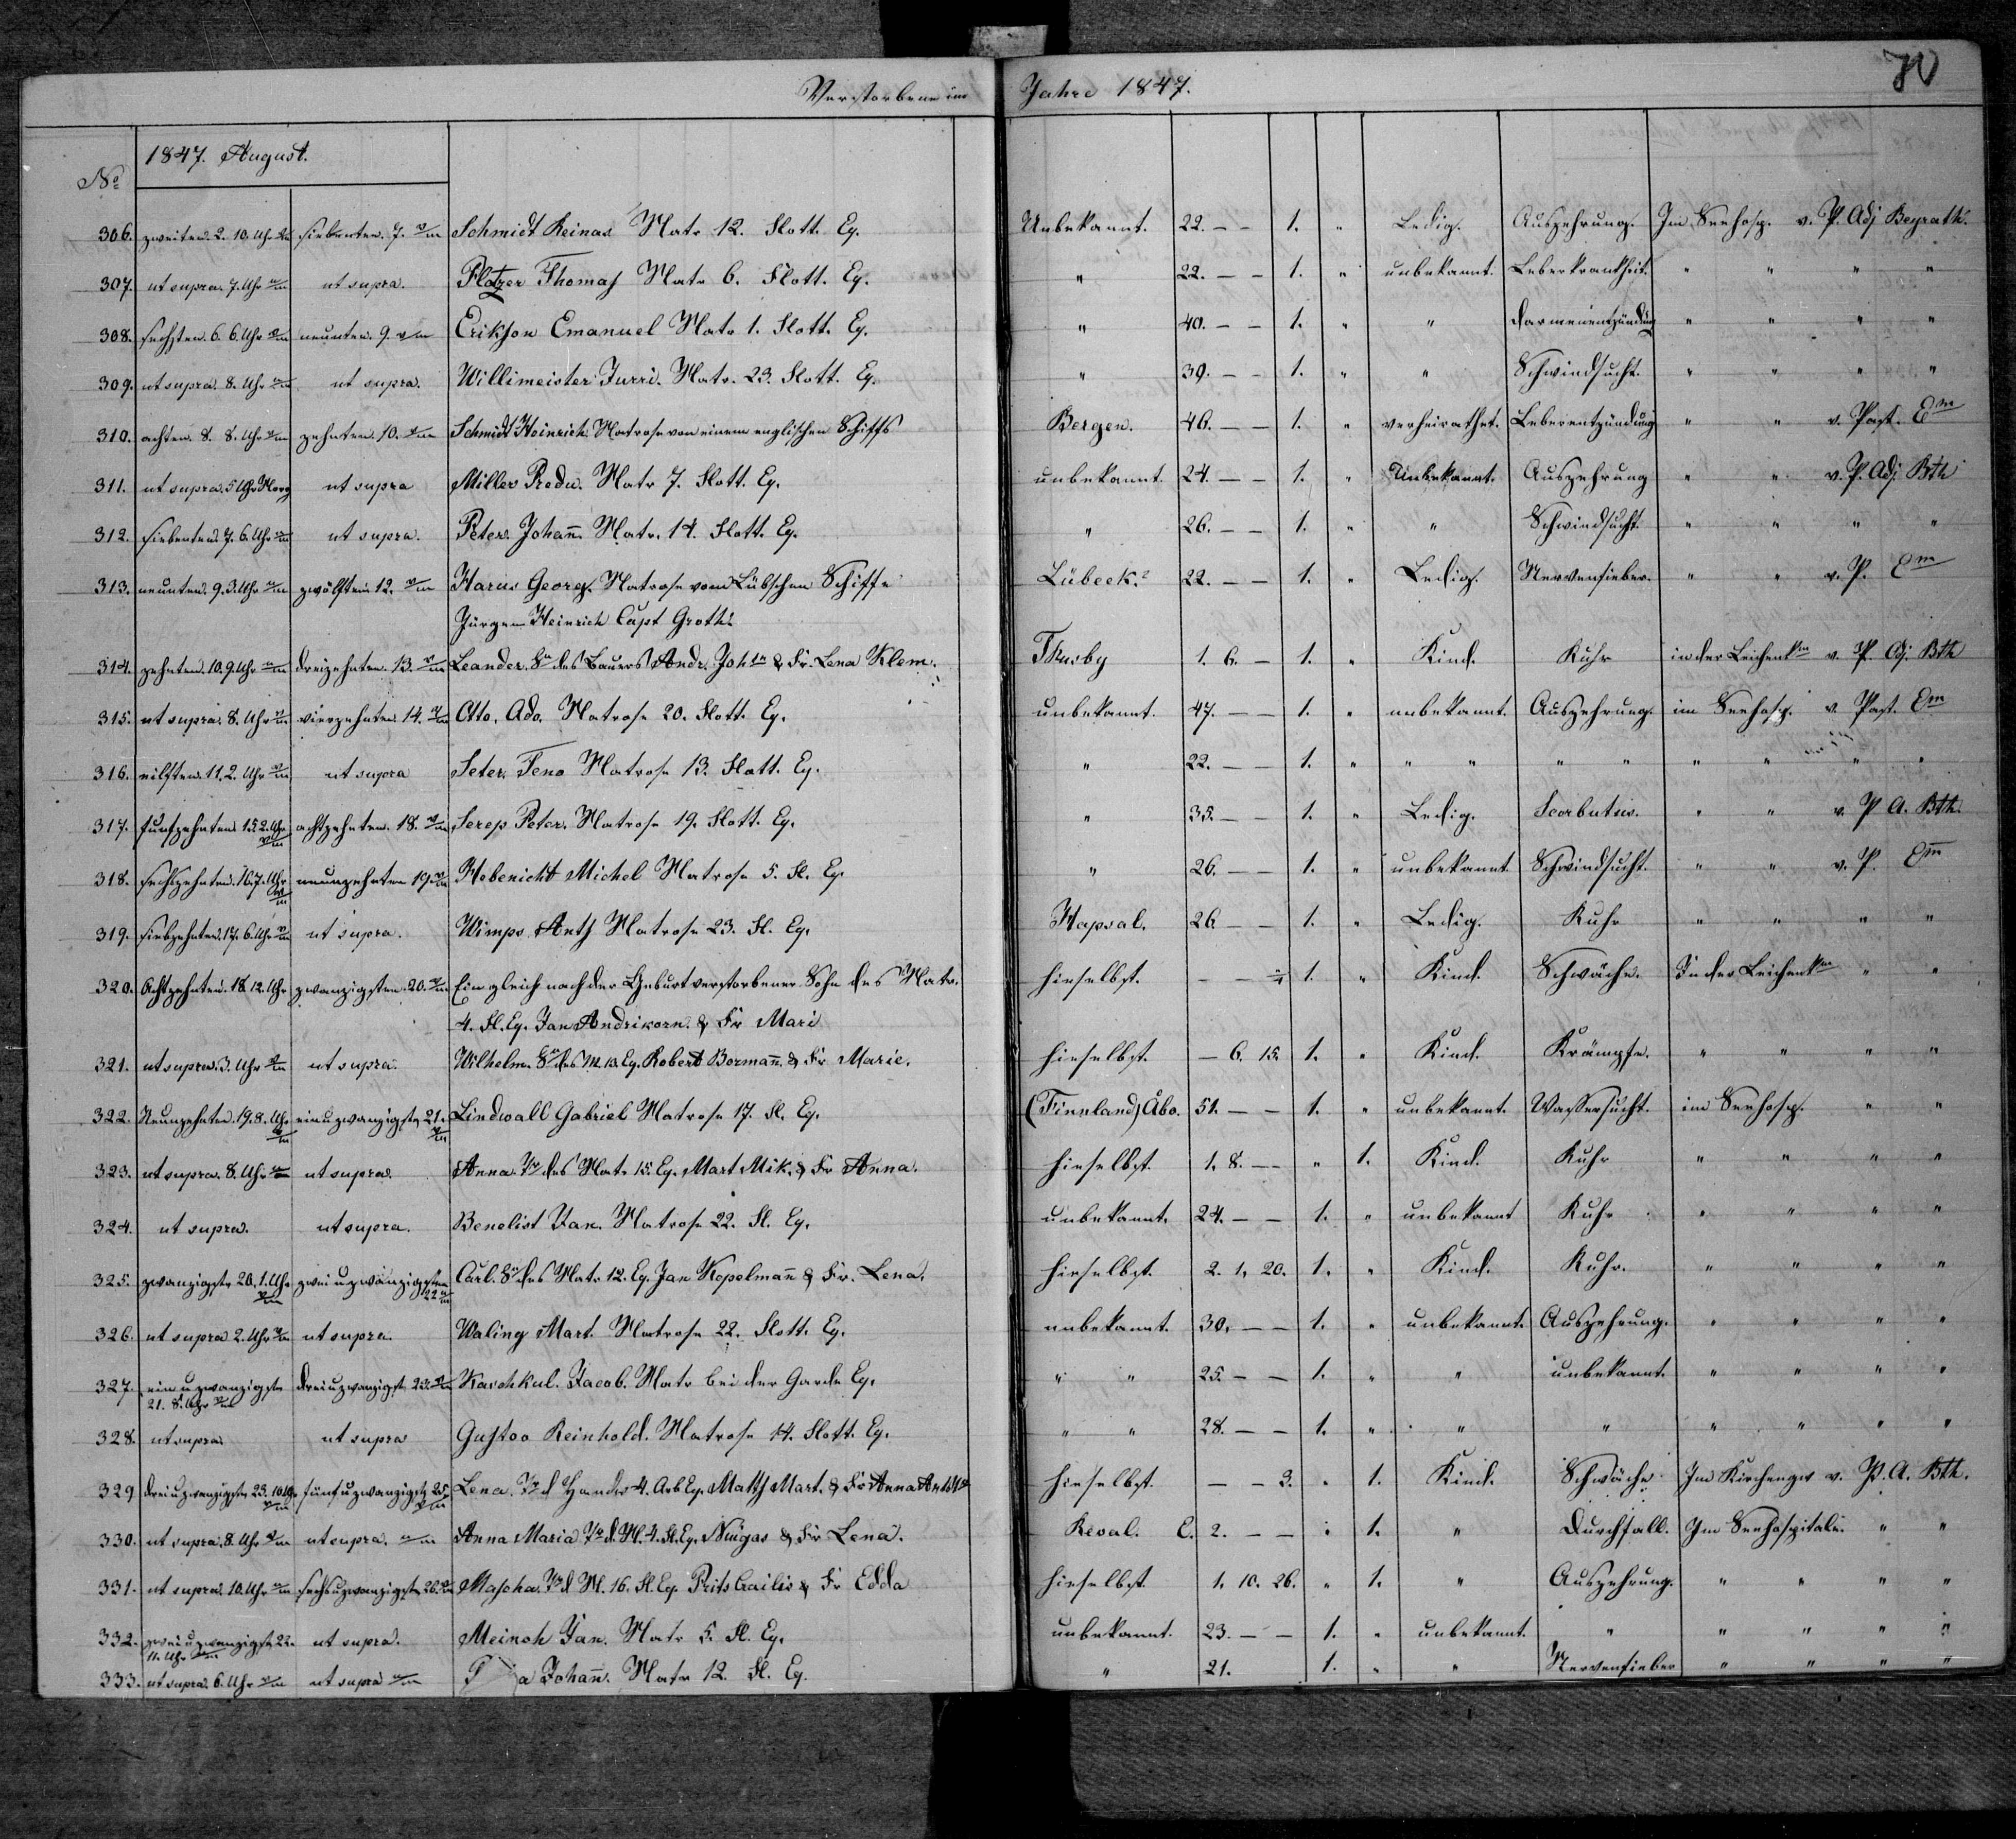 Verstorbene im Jahre 1847.
70
1847. August.
No
306. zweiten. 2. 10. Uhr siebenten. 7. Schmidt Reinas Matr 12. Flott. Eq. Unbekannt. 22. – – 1. " Ledig. Auszehrung. Im Seehosp. v. P. Adj Beyrath.
307. ut supra. 7. Uhr ut supra. Platzer Thomas Matr 6. Flott. Eq. " 22. – – 1. " unbekannt. Leberkrankheit. " " " "
308. sechsten. 6. 6. Uhr neunten. 9. Erikson Emanuel Matr 1. Flott. Eq. " 40. – – 1. " " Darmenentzündung " " " "
309. ut supra. 8. Uhr ut supra. Willimeister Jurri. Matr. 23. Flott. Eq. " 39. – – 1. " " Schwindsucht. " " " "
310. achten. 8. 8. Uhr zehnten. 10. Schmidt Heinrich Matrose von einem englischen Schiffe Bergen. 46. – – 1. " verheirathet. Leberentzündung " " v. Past. Em
311. ut supra. 5 Uhr Morg ut supra Miller Predu. Matr 7. Flott. Eq. unbekannt. 24. – – 1. " Unbekannt. Auszehrung " " v. P. Adj. Bth
312. siebenten. 7. 6. Uhr ut supra. Peter Johañ. Matr. 14. Flott. Eq. " 26. – – 1. " " Schwindsucht. " " " "
313. neunten. 9. 3. Uhr zwölften 12. Harus Georg. Matrose vom Lübschen Schiffe Lübeck. 22. – – 1. " Ledig. Nervenfieber. " " v. P. Em
Jürgen Heinrich Capt Groth.
314. zehnten. 10. 9. Uhr dreizehnten. 13. Leander. Sn des Bauers Andr. Johsn & Fr. Lena Klem. Thusby 1. 6. – 1. " Kind. Ruhr in der Leichenkm v. P. Aj. Bth
315. ut supra. 8. Uhr vierzehnten 14. Otto. Ado. Matrose 20. Flott. Eq. unbekannt. 47. – – 1. " unbekannt. Auszehrung. im Seehosp. v. Past. Em
316. eilften. 11. 2. Uhr ut supra Seter Teno Matrose 13. Flott. Eq. " 22. – – 1. " " " " " " " " "
317. fünfzehnten 15. 2. Uhr achtzehnten. 18. Serep Peter. Matrose 19. Flott. Eq. " 35. – – 1. " Ledig. Scorbutus. " " v. P A. Bth.
318. sechszehnten. 16. 7. Uhr neunzehnten 19. Hebenicht Michel Matrose 5. Fl. Eq. " 26. – – 1. " unbekannt Schwindsucht. " " v. P. Em
319. siebzehnten. 17. 6. Uhr ut supra. Wimps Ants Matrose 23. Fl. Eq. Hapsal. 26. – – 1. " Ledig. Ruhr " " " "
320. Achtzehnten. 18. 12. Uhr zwanzigsten. 20. Ein gleich nach der Geburt verstorbener Sohn des Matr. hieselbst. – – 1. " Kind. Schwäche. In der Leichenkm " "
4. Fl. Eq. Jan Andrikorn. & Fr Mari
321. ut supra. 3. Uhr ut supra. Wilhelm. Sn des M. 13. Eq. Robert Bormañ. & Fr Marie. hieselbst. – 6. 15. 1. " Kind. Krämpfe. " " " "
322. Neunzehnten. 19. 8. Uhr ein u zwanzigsten 21. Lindwall Gabriel Matrose 17. Fl. Eq. (Finnland) Åbo. 51. – – 1. " unbekannt. Wassersucht. im Seehosp. " "
323. ut supra. 8. Uhr ut supra. Anna Tr des Matr. 15. Eq. Mart Mik. & Fr Anna. hieselbst. 1. 8. – " 1. Kind. Ruhr " " " "
324. ut supra. ut supra. Benelist Jan. Matrose 22. Fl. Eq. unbekannt. 24. – – 1. " unbekannt Ruhr " " " "
325. zwanzigste 20. 1. Uhr zwei u zwanzigsten 22 Carl. Sn des Matr 12. Eq. Jan Kopelmañ & Fr. Lena. hieselbst. 2. 1. 20. 1. " Kind. Ruhr. " " " "
326. ut supra 2. Uhr ut supra. Waling Mart. Matrose 22. Flott. Eq. unbekannt. 30. – – 1. " unbekannt. Auszehrung. " " " "
327. ein u zwanzigste 21. 8. Uhr drei u zwanzigst. 23. Kaschkul. Jacob. Matr bei der Garde Eq. " " 25. – – 1. " " unbekannt. " " " "
328. ut supra. ut supra Gustoo Reinhold. Matrose 14. Flott. Eq. " " 28. – – 1. " " " " " " "
329 drei u zwanzigste 23. fünf u zwanzigst 25. Lena. Tr d 4. Arb Eq. Matts Mart. & Fr Anna hieselbst. – – 3. " 1. Kind. Schwäche Im v. P. A. Bth.
330. ut supra. 8. Uhr ut supra. Anna Maria Tr d. M. 4. Fl. Eq. Nuigas & Fr Lena. Reval. E. 2. – – " 1. " Durchfall. Im Seehospitale. " "
331. ut supra. 10. Uhr sechs u zwanzigste 26. Mascha. Tr d M. 16. Fl. Eq. Prits Gailis & Fr Edda hieselbst. 1. 10. 26. " 1. " Auszehrung. " " " "
332. zwei u zwanzigste 22. 11. Uhr ut supra. Meinoh Jan. Matr 5. Fl. Eq. unbekannt. 23. – – 1. " unbekannt. " " " " "
333. ut supra. 6. Uhr ut supra Johañ. Matr 12. Fl. Eq. " 21. 1. " " Nervenfieber " " " "